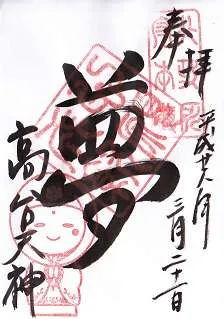 奉拝
平成廿八年
三月二十一日
夢
高台天神